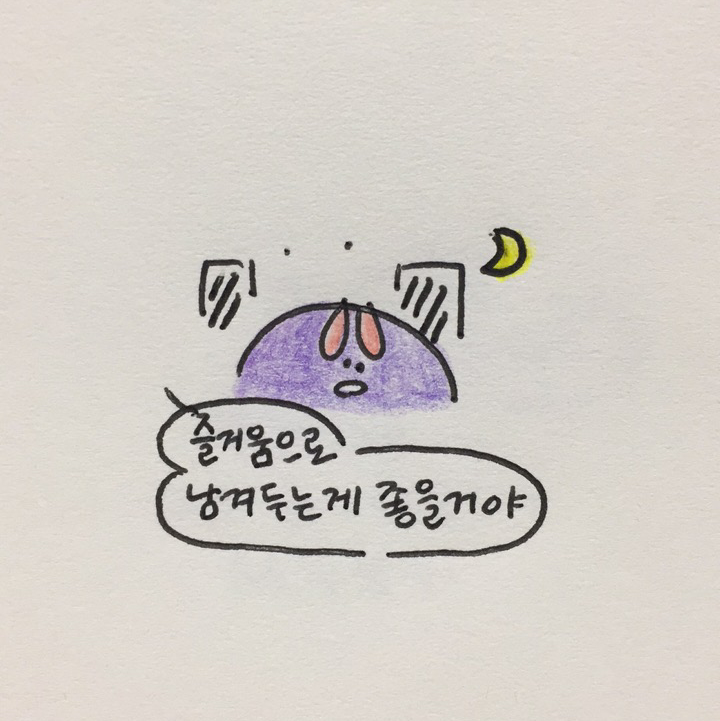 즐거움으로
남겨두는게 좋을거야